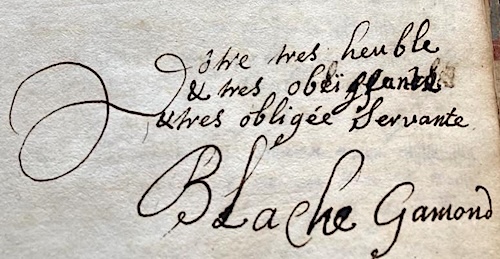 Vôtre tres heuble
& tres obeïssante
& tres obligée Servante
Blache Gamond